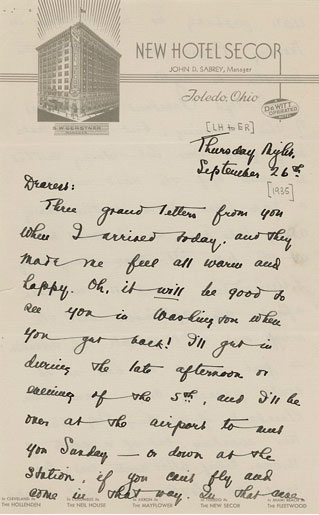 NEW HOTEL SECOR
JOHN D. SABREY, Manager
Toledo, Ohio
DeWITT
OPERATED
[LH to ER]
Thursday Night,
September 26th
[1935]
Dearest:
Three grand letters from you
when I arrived today, and they
made me feel all warm and
happy. Oh, it will be good to
see you in Washington when
you get back! I'll get in
during the late afternoon or
evening of the 5th, and I'll be
over at the airport to meet
you Sunday — or down at the
station, if you can't fly and
come in that way. In that case
In CLEVELAND It's THE HOLLENDEN
In COLUMBUS It's THE NEIL HOUSE
In AKRON It's THE MAYFLOWER
In TOLEDO It's THE NEW SECOR
In MIAMI BEACH It's THE FLEETWOOD